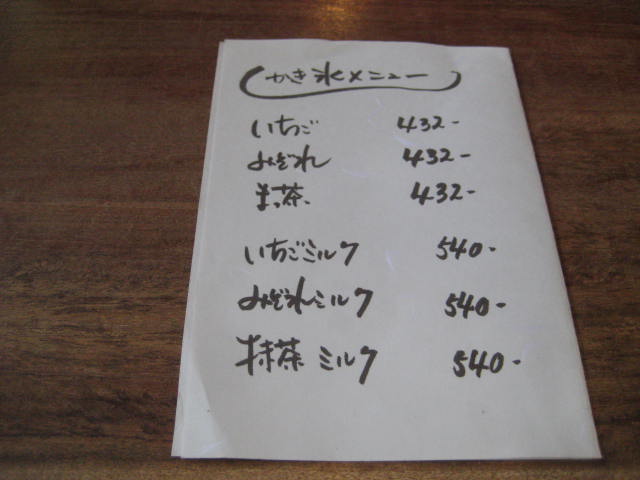 かき氷メニュー
いちご 432-
みぞれ 432-
まっ茶 432-
いちごミルク 540-
みぞれミルク 540-
抹茶ミルク 540-